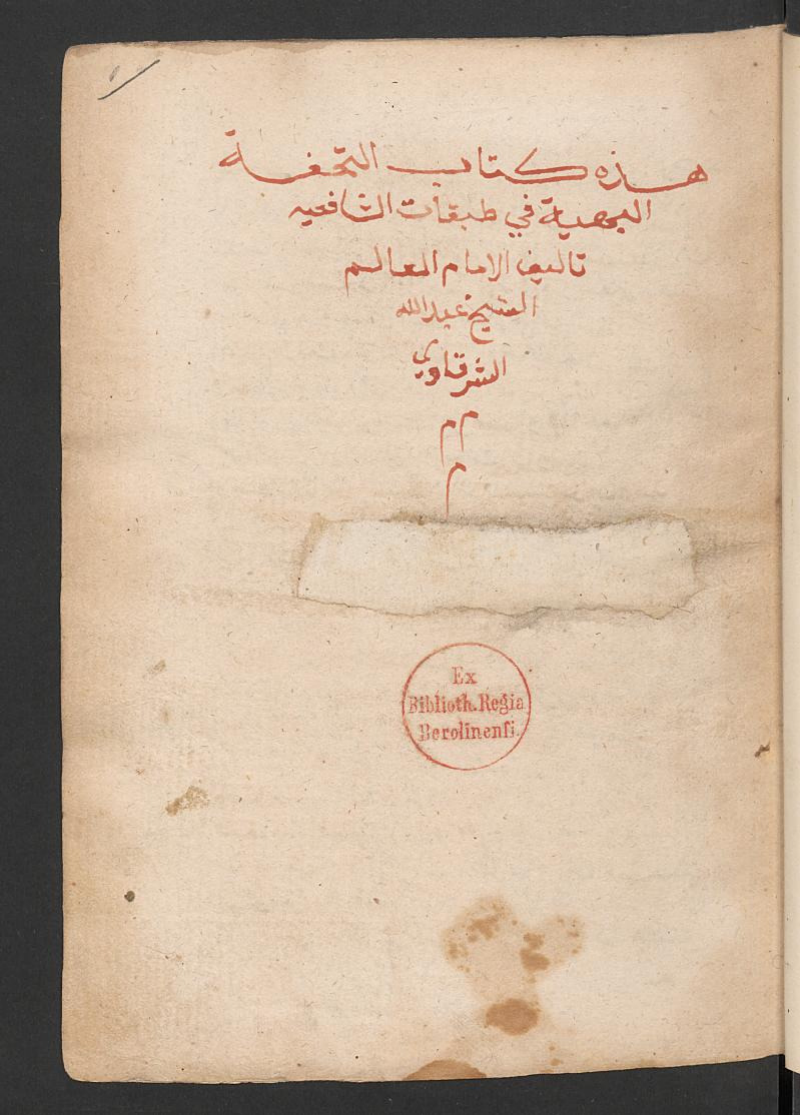 هذه كتاب التحفة
البهية في طبقات الشافعيه
تاليف الامام العالم
الشيخ عبد الله
الشرقاوي
م م
م
Ex
Biblioth. Regia
Berolinensi.